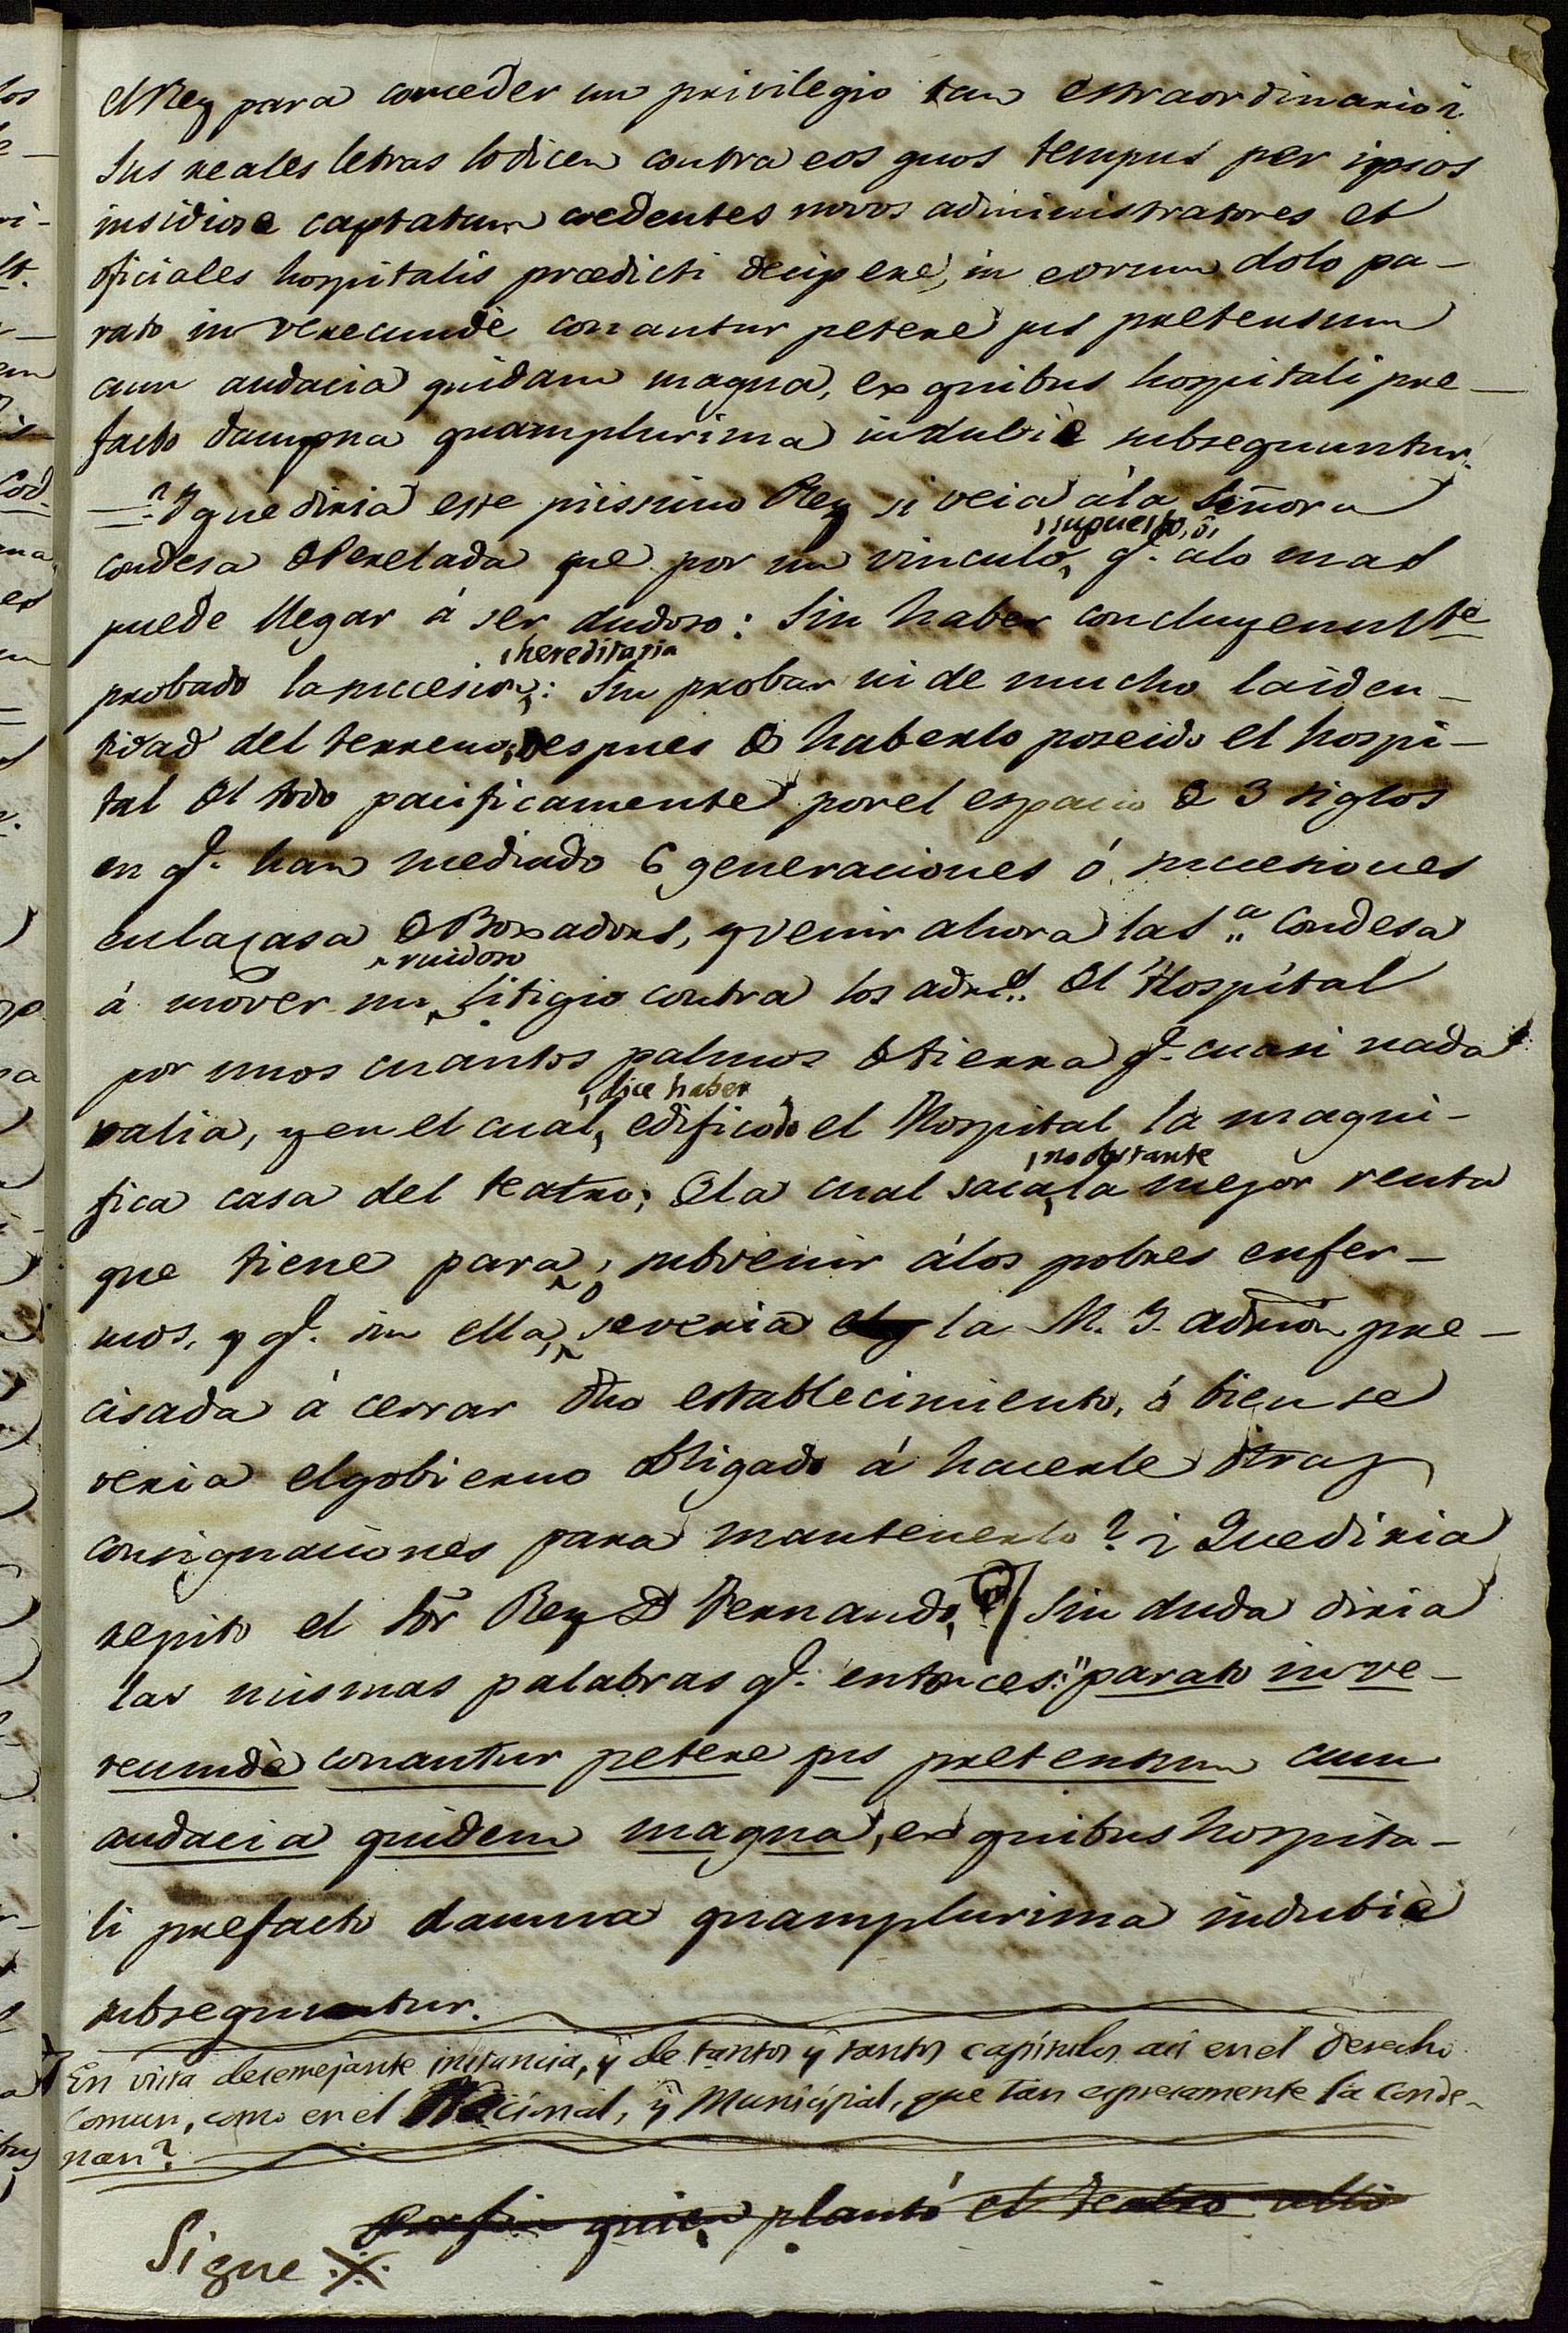 el Rey para conceder un privilegio tan estraordinario?
Sus reales letras lo dicen contra eos quos tempus per ipsos
insidiose captatum credentes novos administratores et
oficiales hospitalis prædicti decipere, in eorum dolo pa-
rato inverecundè conantur petere jus pretensum
cum audacia quidam magna, ex quibus hospitali pre-
facto dampna quamplurima indubiè subsequuntur.
¿Y que diria este piissimo Rey si veia á la Señora
supuesto, ó,
condesa de Perelada que por un vinculo, q.e alo mas
puede llegar á ser dudoso: Sin haber concluyenmte
hereditaria
probado la succesion,: Sin probar ni de mucho la iden-
tidad del terreno, despues de haberlo poseido el hospi-
tal del todo pacificamente por el espacio de 3 siglos
en q.e han mediado 6 generaciones ó succesiones
en la casa de Boxadors, y venir ahora la S.a Condesa
ruidoso
á mover un litigio contra los adm.s del Hospital
por unos cuantos palmos de tierra q.e cuasi nada
dice haber
valia, y en el cual, edificado el Hospital la magni-
no obstante
fica casa del teatro; de la cual saca, la mejor renta
que tiene para, subvenir á los pobres enfer-
mos, y q.e sin ella, severia la M. I. admon pre-
cisada á cerrar dho establecimiento, ó bien se
veria el gobierno obligado á hacerle otras
consignaciones para mantenerlo? ¿Que diria
repito el Sōr Rey Dn Fernando, Sin duda diria
las mismas palabras q.e entonces: "parato inve-
recundè conantur petere jus pretensum cum
audacia quidem magna, ex quibus hospita-
li prefacto damna quamplurima indubiè
subsequuntur.
En vista de semejante instancia, y de tantos y tantos capítulos asi en el derecho
comun, como en el Nacional, y Municipal, que tan espresamente la conde-
nan?
quien plantó el teatro alli
Sigue